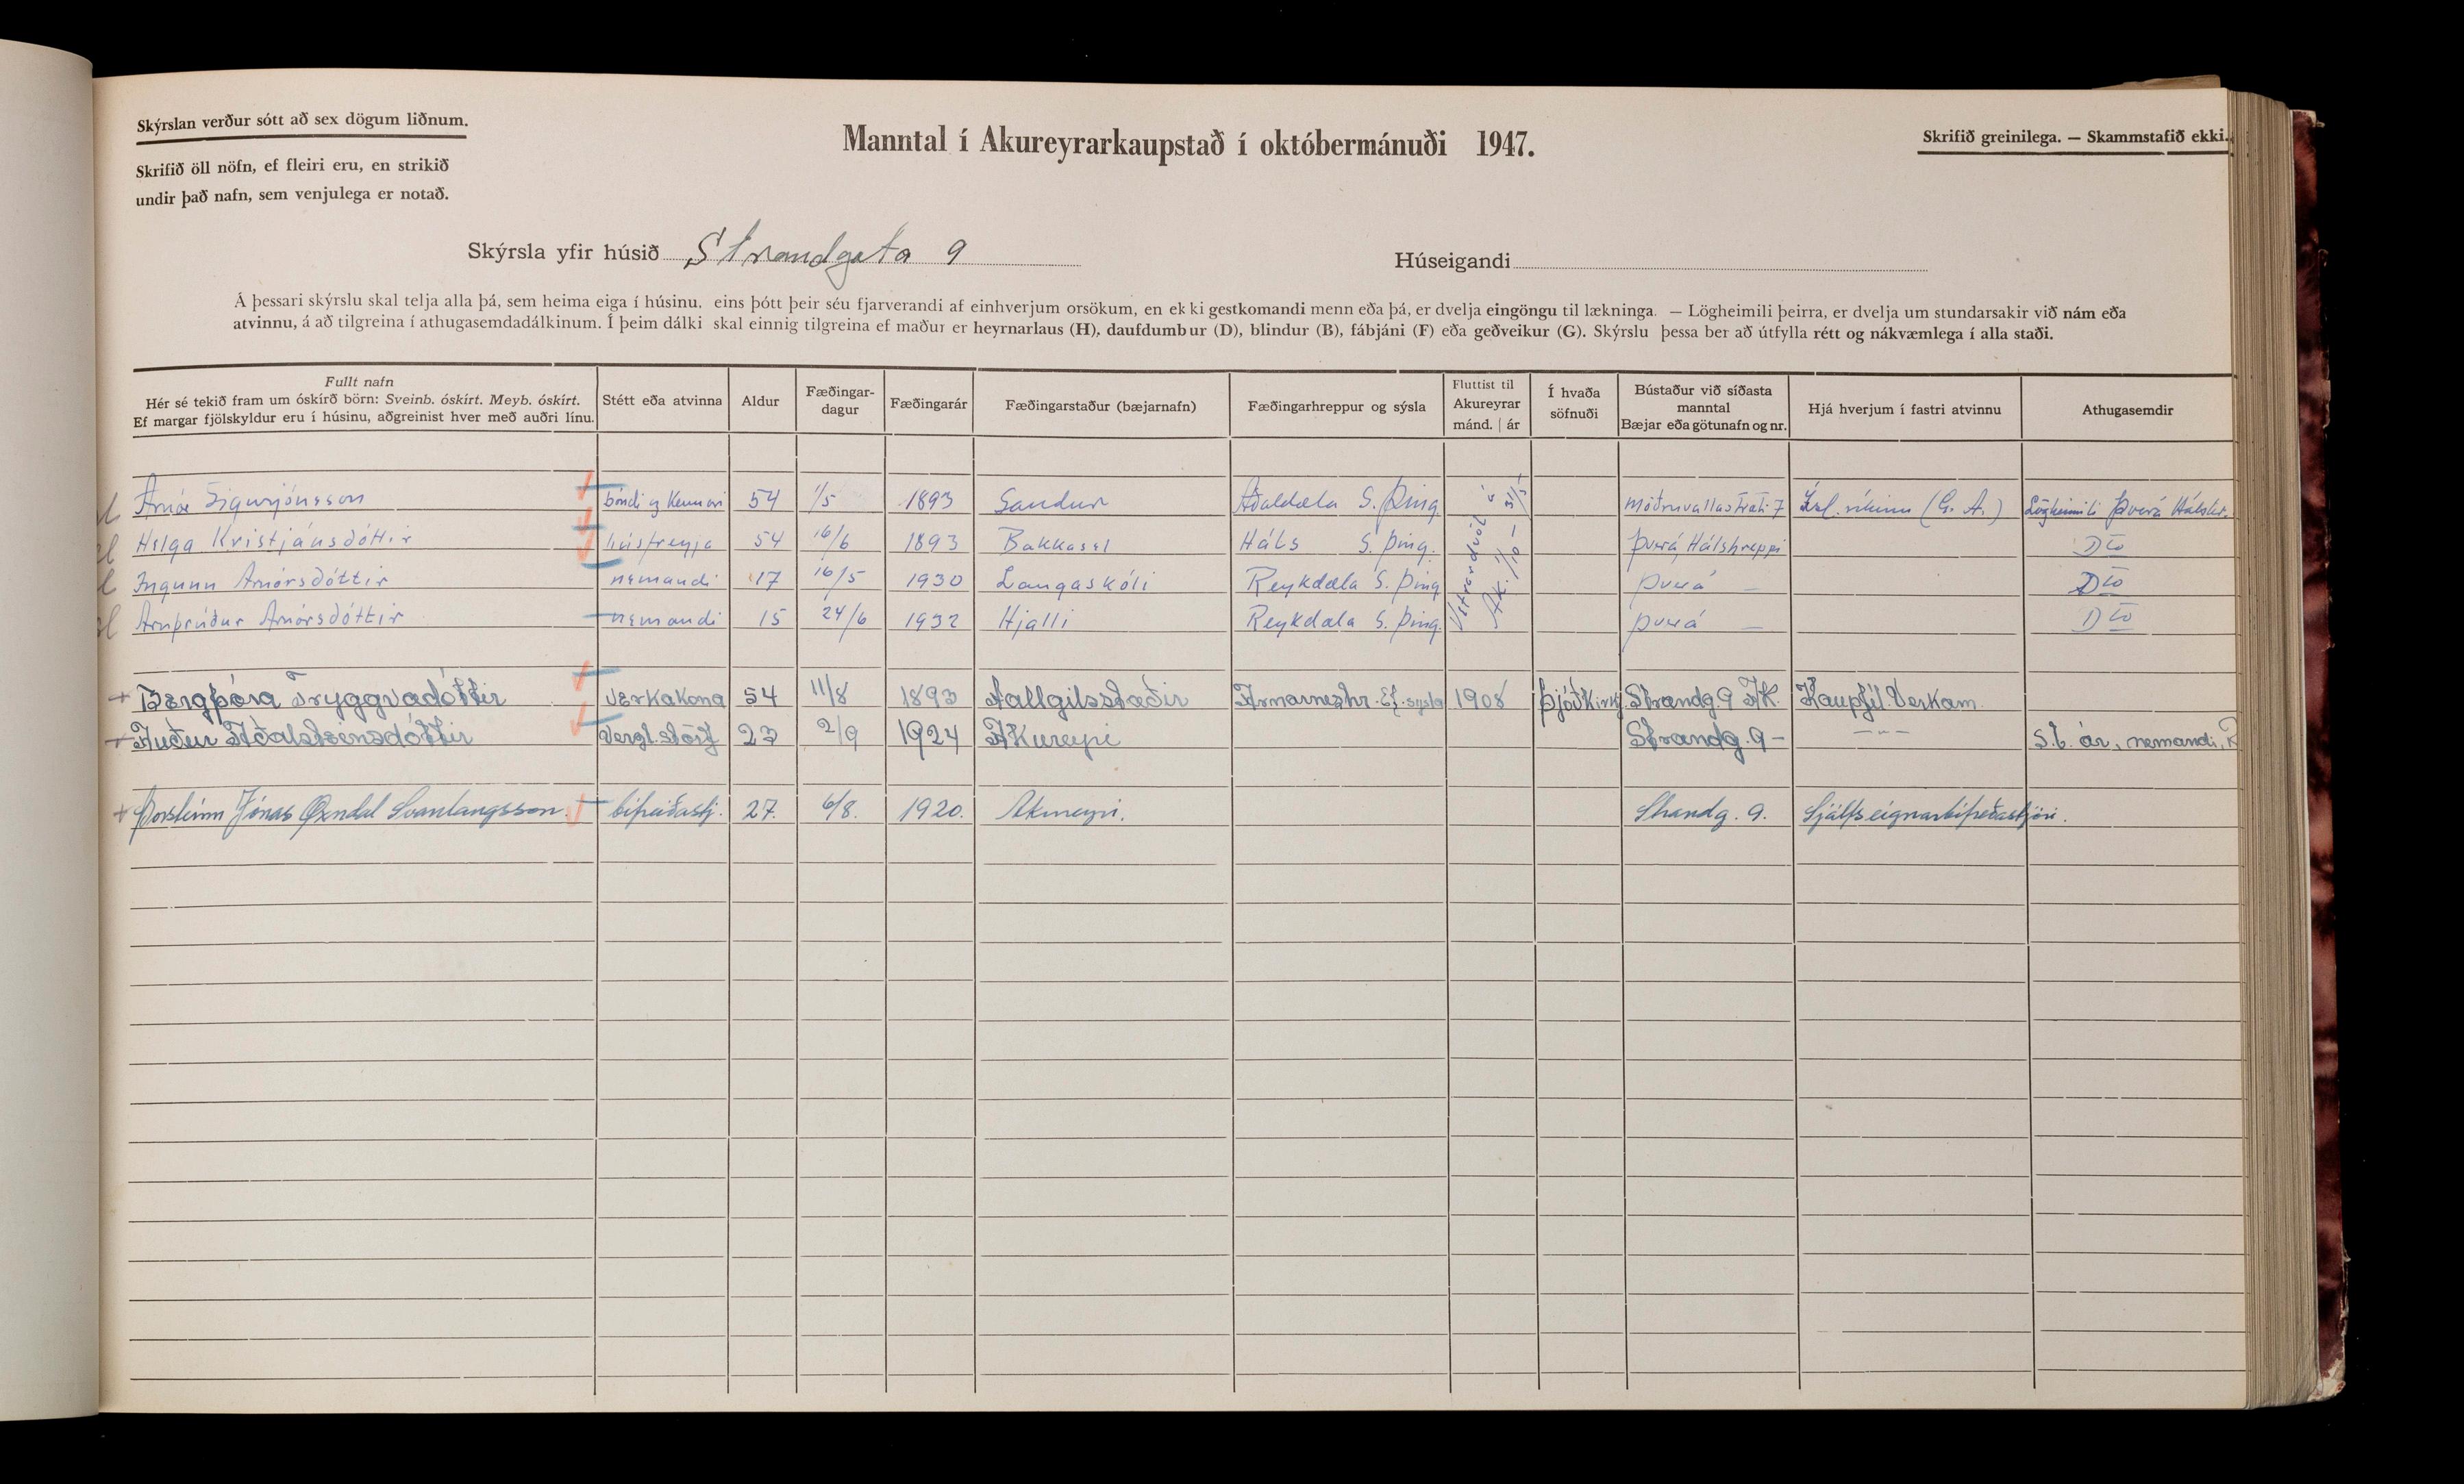 Skýrslan verður sótt að sex dögum liðnum.
Skrifið öll nöfn, ef fleiri eru, en strikið
undir það nafn, sem venjulega er notað.
Manntal í Akureyrarkaupstað í októbermánuði 1947.
Skrifið greinilega. — Skammstafið ekki.
Skýrsla yfir húsið Strandgata 9
Húseigandi
Á þessari skýrslu skal telja alla þá, sem heima eiga í húsinu, eins þótt þeir séu fjarverandi af einhverjum orsökum, en ekki gestkomandi menn eða þá, er dvelja eingöngu til lækninga. — Lögheimili þeirra, er dvelja um stundarsakir við nám eða
atvinnu, á að tilgreina í athugasemdadálkinum. Í þeim dálki skal einnig tilgreina ef maður er heyrnarlaus (H), daufdumbur (D), blindur (B), fábjáni (F) eða geðveikur (G). Skýrslu þessa ber að útfylla rétt og nákvæmlega í alla staði.
Fullt nafn
Hér sé tekið fram um óskírð börn: Sveinb. óskírt. Meyb. óskírt.
Ef margar fjölskyldur eru í húsinu, aðgreinist hver með auðri línu.
Stétt eða atvinna
Aldur
Fæðingar-
dagur
Fæðingarár
Fæðingarstaður (bæjarnafn)
Fæðingarhreppur og sýsla
Fluttist til
Akureyrar
mánd. | ár
Í hvaða
söfnuði
Bústaður við síðasta
manntal
Bæjar eða götunafn og nr.
Hjá hverjum í fastri atvinnu
Athugasemdir
Arnór Sigurjónsson bóndi og kennari 54 1/5 1893 Sandur Aðaldæla S. Þing. Möðruvallastræti 7 Ísl. ríkinu (G. A.) Lögheimili Þverá Hálshr.
Helga Kristjánsdóttir húsfreyja 54 16/6 1893 Bakkasel Háls S. Þing. Þverá, Hálshreppi Do
Ingunn Arnórsdóttir nemandi 17 16/5 1930 Laugaskóli Reykdæla S. Þing Þverá — Do
Arnþrúður Arnórsdóttir nemandi 15 24/6 1932 Hjalli Reykdæla S. Þing. Þverá — Do
+ Bergþóra Tryggvadóttir verkakona 54 11/8 1893 Fallgilsstaðir Arnarneshr. Ef. sýsla 1908 Þjóðkirkj. Strandg. 9 AK. Kaupfél. Verkam.
+ Auður Aðalsteinsdóttir Vergl. störf 23 2/9 1924 AKureyri Strandg. 9 — — " — s.l. ár, nemandi,
+ Þorsteinn Jónas Öxndal Svanlaugsson. bifreiðastj. 27. 6/8. 1920. Akureyri. Strandg. 9. Sjálfseignarbifreðastjóri.